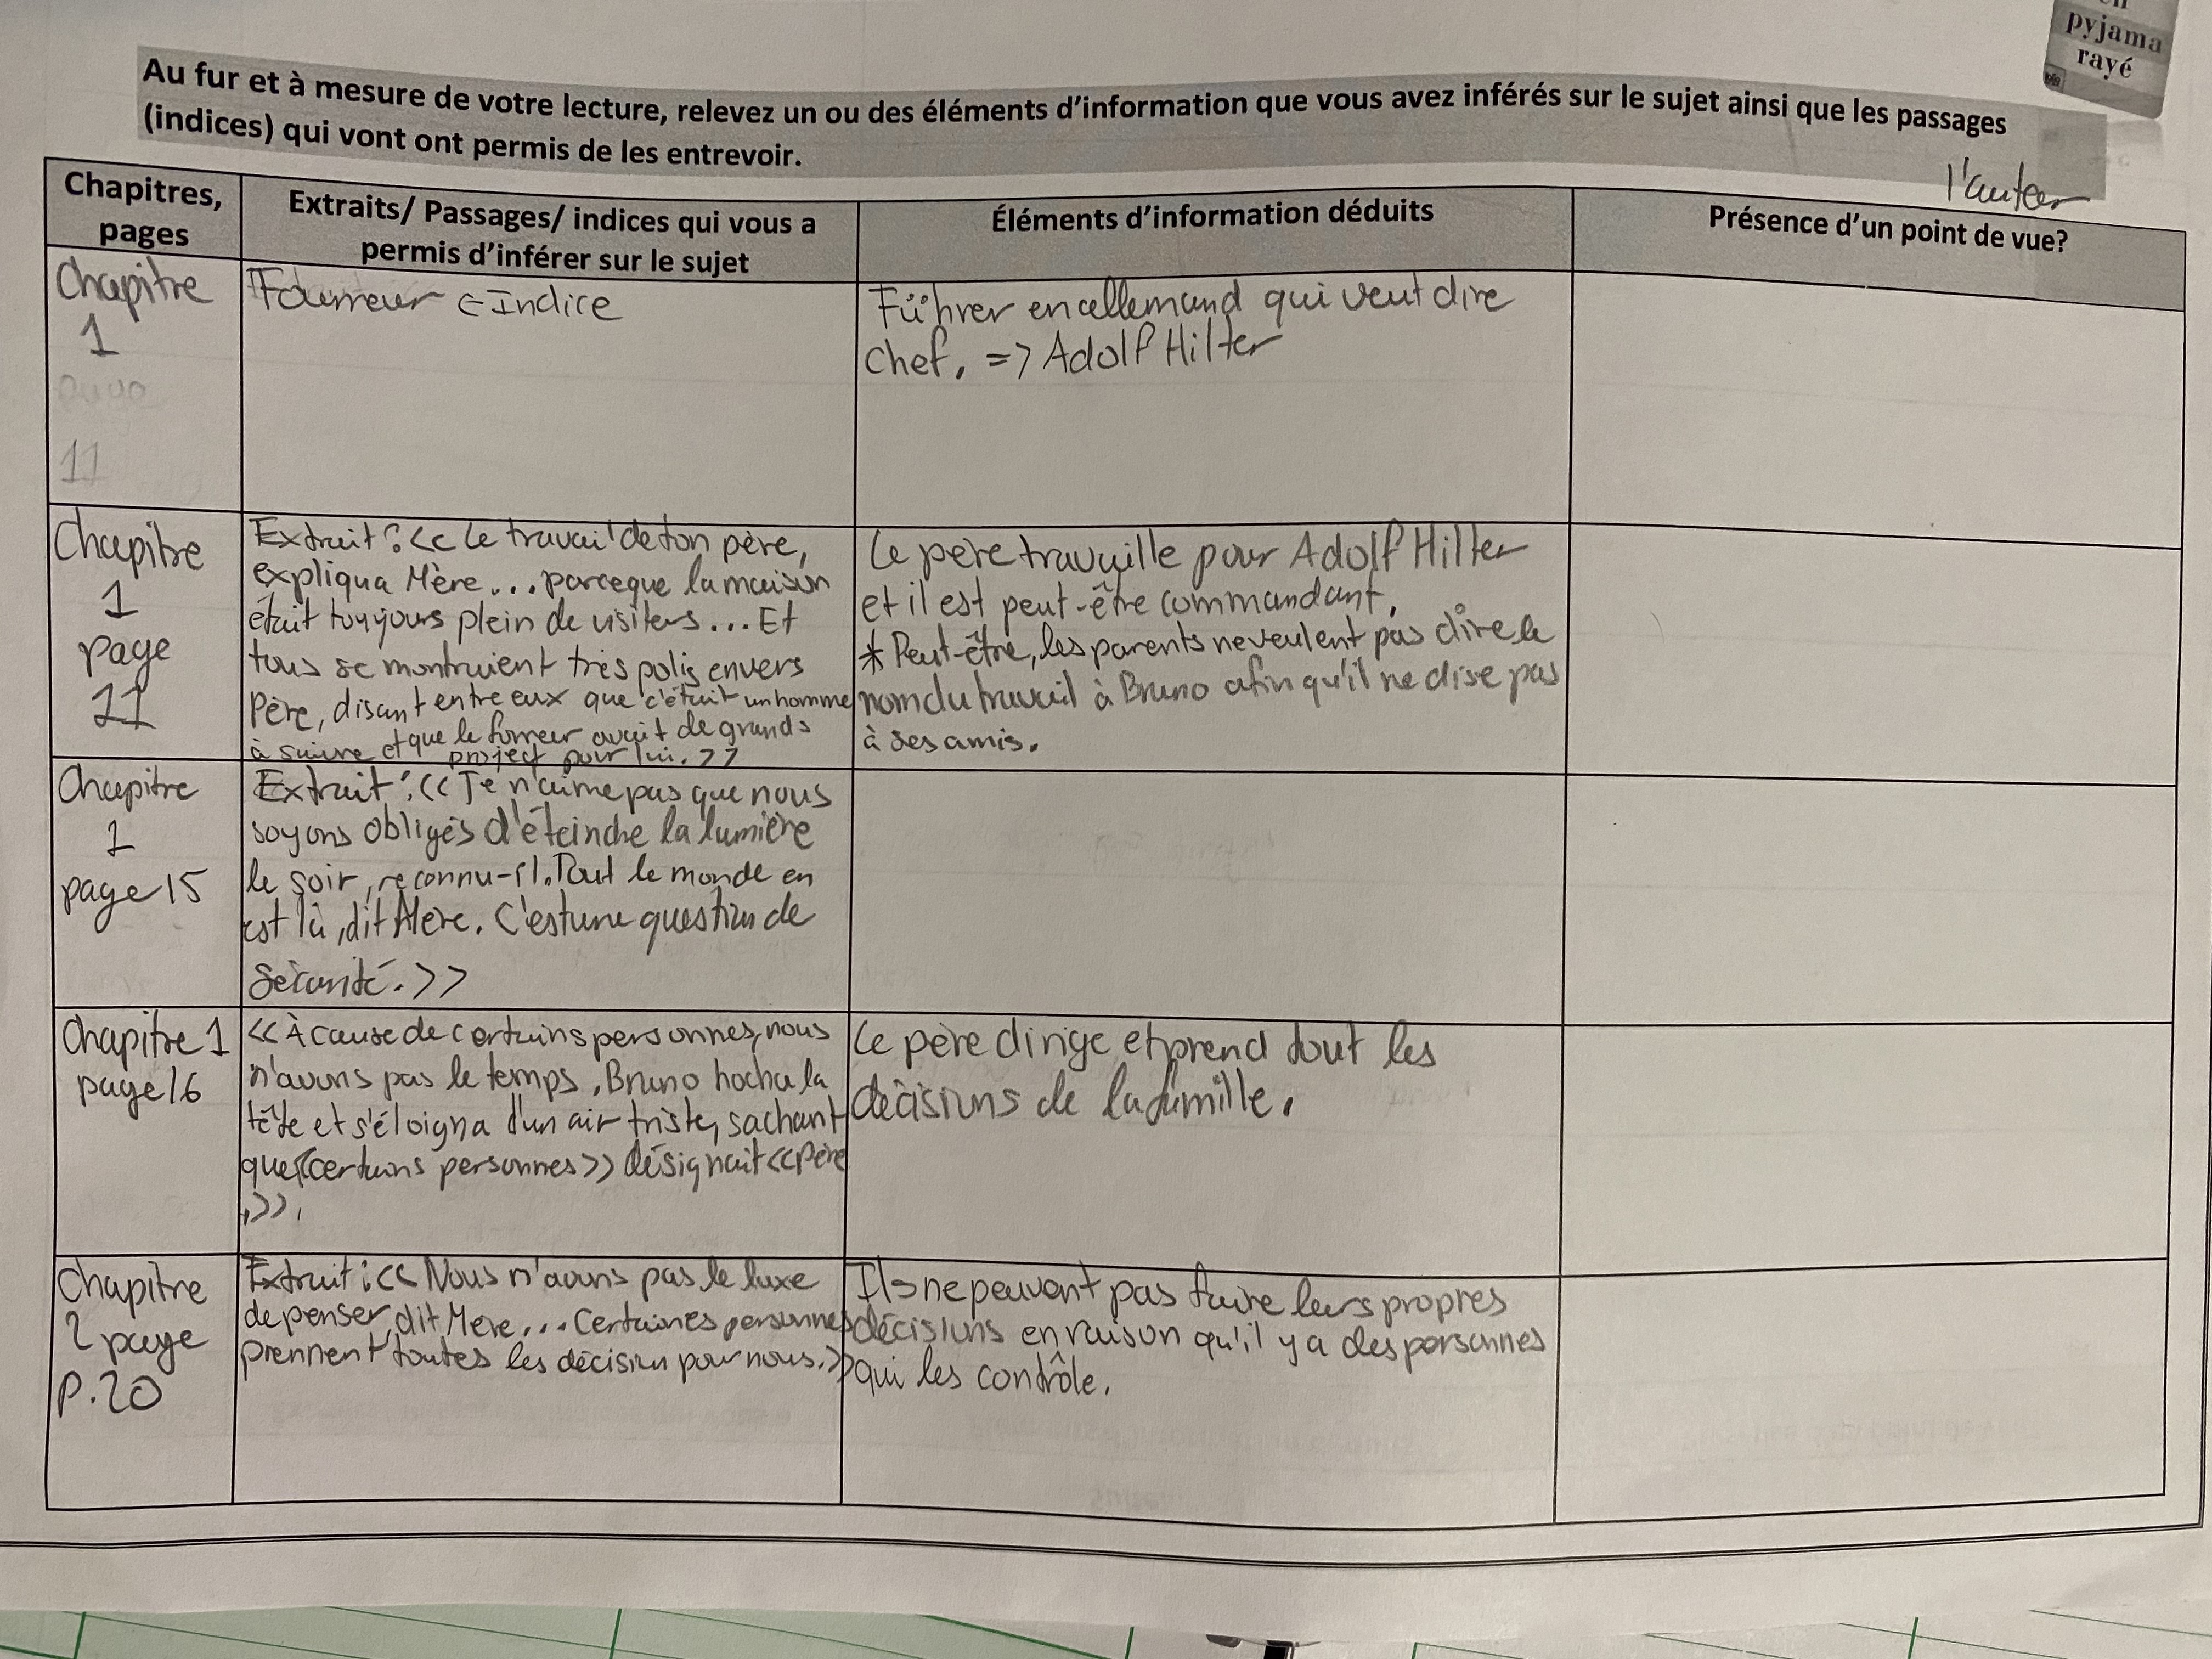 pyjama
rayé
Au fur et à mesure de votre lecture, relevez un ou des éléments d'information que vous avez inférés sur le sujet ainsi que les passages
(indices) qui vont ont permis de les entrevoir.
l'auteur
Chapitres,
pages
Extraits/ Passages/ indices qui vous a
permis d'inférer sur le sujet
Éléments d'information déduits
Présence d'un point de vue?
Chapitre
1
page
11
Fourreur ⊂ Indice
Führer en allemand qui veut dire
chef, => Adolf Hilter
Chapitre
1
page
11
Extrait : << Le travail de ton père,
expliqua Mère... parceque la maison
était toujours plein de visiters... Et
tous se montraient très polis envers
Père, disant entre eux que c'était un homme
à suivre et que le forreur avait de grands
project pour lui. >>
Le père travaille pour Adolf Hilter
et il est peut-être commandant,
* Peut-être, les parents ne veulent pas dire le
nom du travail à Bruno afin qu'il ne dise pas
à ses amis.
Chapitre
1
page 15
Extrait : << Je n'aime pas que nous
soyons obligés d'éteinche la lumière
le soir, reconnu-il. Tout le monde en
est là, dit Mère. C'est une question de
sécurité. >>
Chapitre 1
page 16
<< À cause de certains personnes, nous
n'avons pas le temps, Bruno hocha la
tête et s'éloigna d'un air triste, sachant
que << certains personnes >> désignait << Père
. >>.
Le père dirige et prend tout les
décisions de la famille.
Chapitre
2 page
P.20
Extrait : << Nous n'avons pas le luxe
de penser, dit Mère... Certaines personnes
prennent toutes les décision pour nous. >>
Ils ne peuvent pas faire leurs propres
décisions en raison qu'il y a des personnes
qui les contrôle.